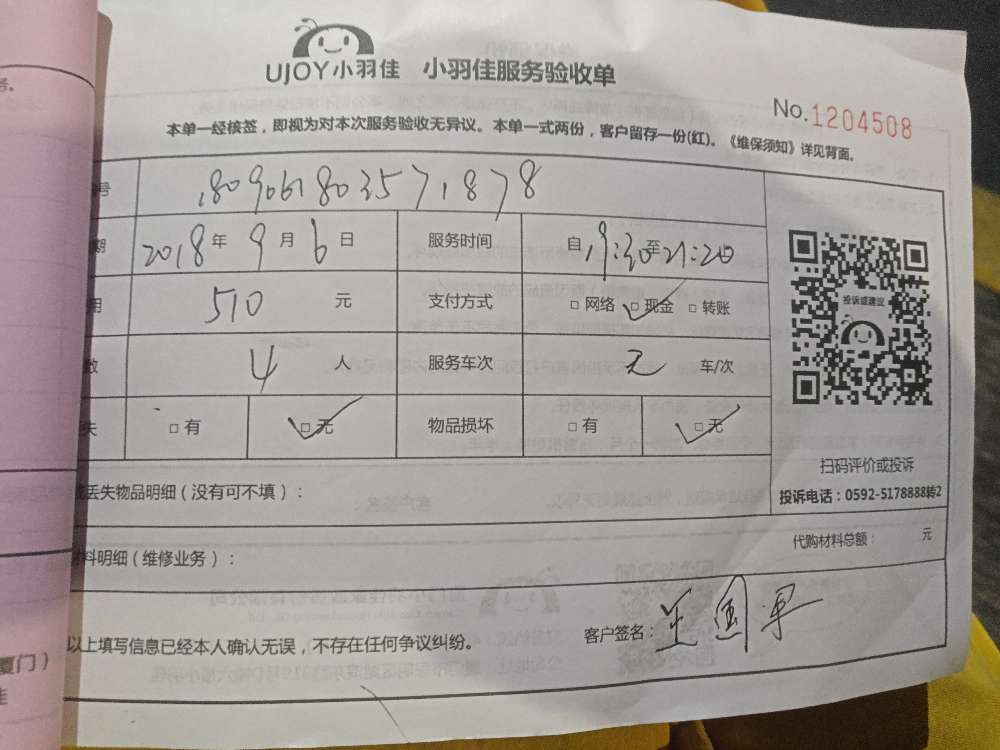 务。
UJOY小羽佳 小羽佳服务验收单
No.1204508
本单一经核签，即视为对本次服务验收无异议。本单一式两份，客户留存一份(红)。《维保须知》详见背面。
号
期 2018年9月6日 服务时间 自 9:30 至 21:20
用 510 元 支付方式 □ 网络 □ 现金 □ 转账
数 4 人 服务车次 车/次
失 □ 有 □ 无 物品损坏 □ 有 □ 无
投诉或建议
扫码评价或投诉
投诉电话：0592-5178888转2
丢失物品明细（没有可不填）：
料明细（维修业务）：
代购材料总额： 元
以上填写信息已经本人确认无误，不存在任何争议纠纷。
客户签名：
厦门）
佳